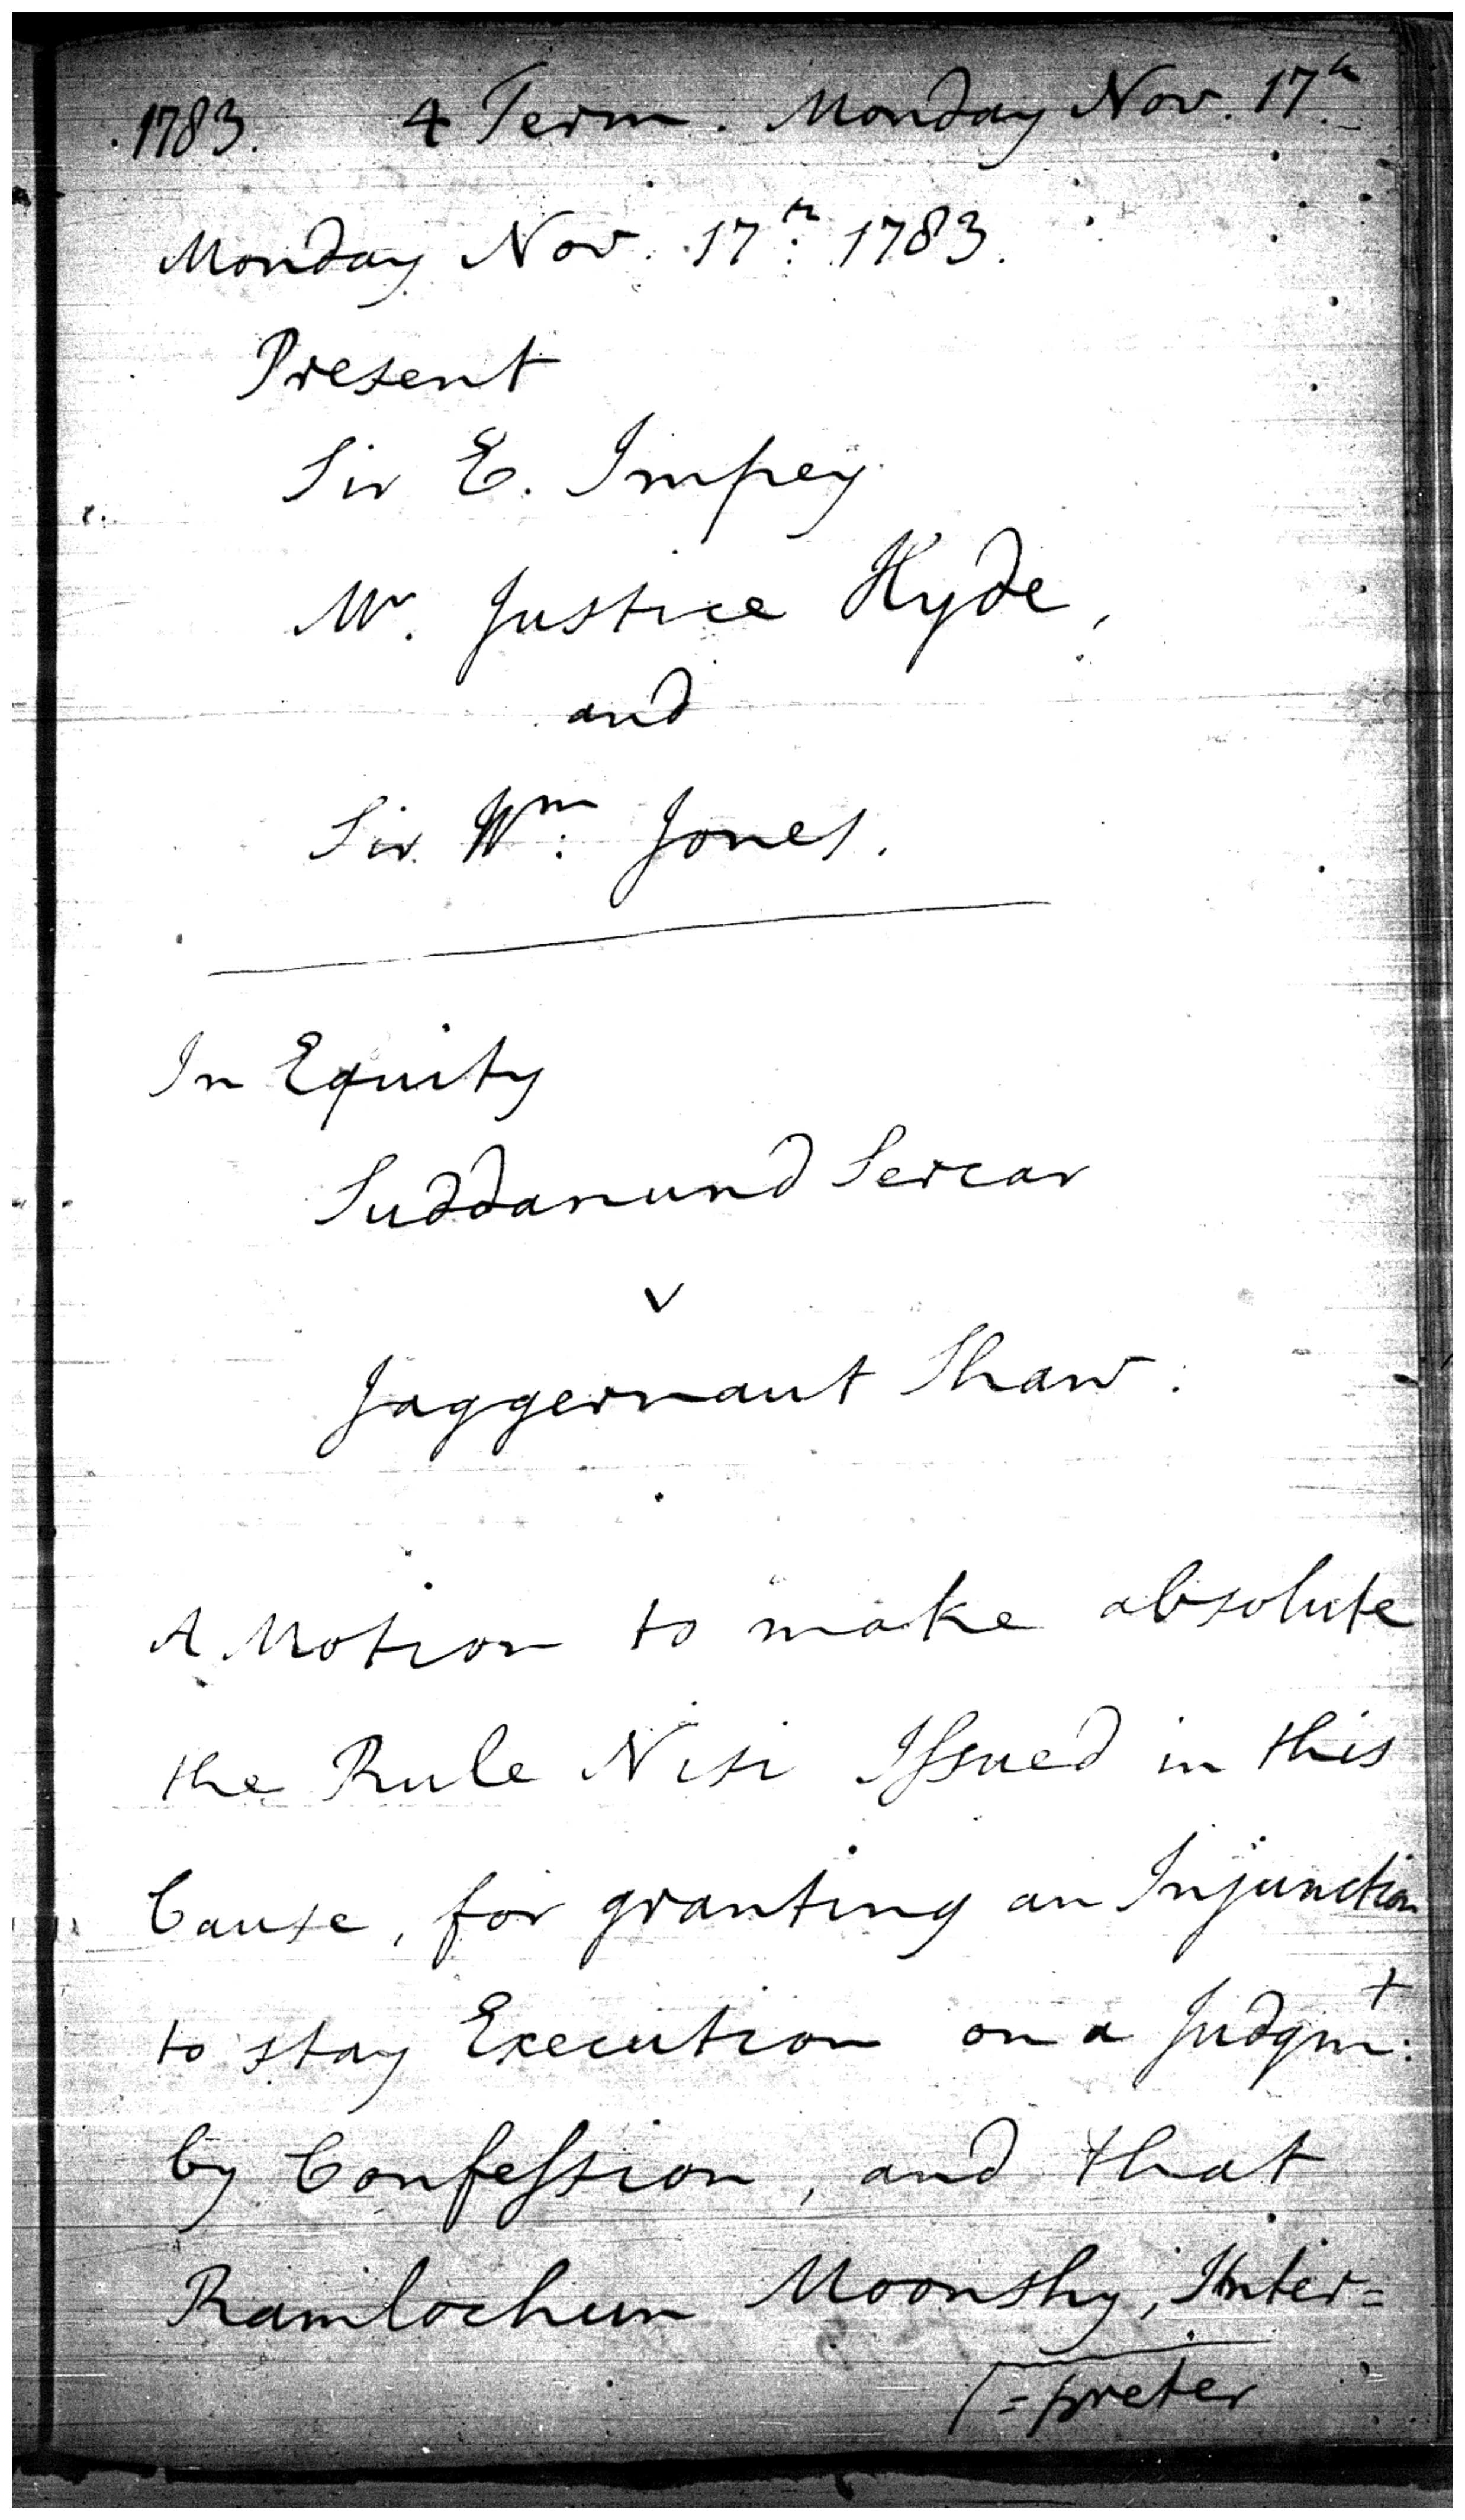 1783. 4 Term. Monday Nov. 17th
Monday Nov. 17th: 1783.
Present
Sir E. Impey
Mr. Justice Hyde,
and
Sir Wm: Jones.
In Equity
Suddanund Sercar
v
Jaggernaut Shaw.
A Motion to make absolute
the Rule Nisi Issued in this
Cause, for granting an Injunction
to stay Execution on a Judgmt:
by Confession, and that
Ramlochun Moonshy, Inter=
=preter